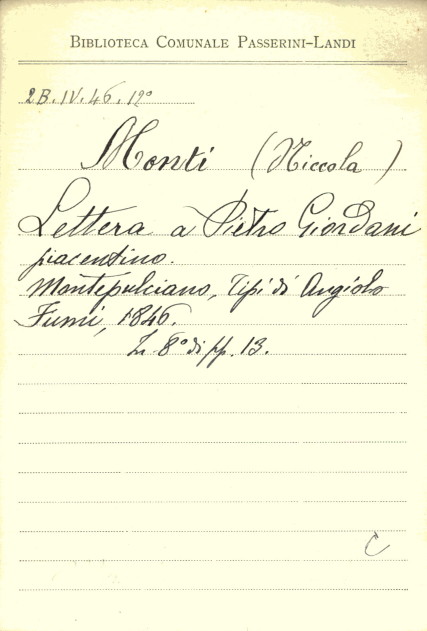 BIBLIOTECA COMUNALE PASSERINI-LANDI
2B.IV.46.12º
Monti (Niccola)
Lettera a Pietro Giordani
piacentino.
Montepulciano, Tipi di Angiolo
Fumi, 1846.
In 8º di pp. 13.
C